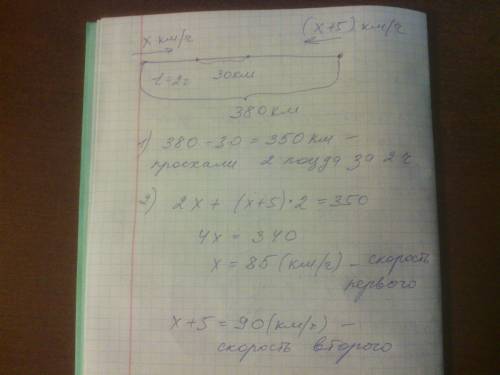 x км/ч (x+5) км/ч
t=2ч 30км
380 км
1) 380 - 30 = 350 км -
проехали 2 поезда за 2 ч
2) 2x + (x+5)·2 = 350
4x = 340
x = 85 (км/ч) - скорость
первого
x+5 = 90 (км/ч) -
скорость второго